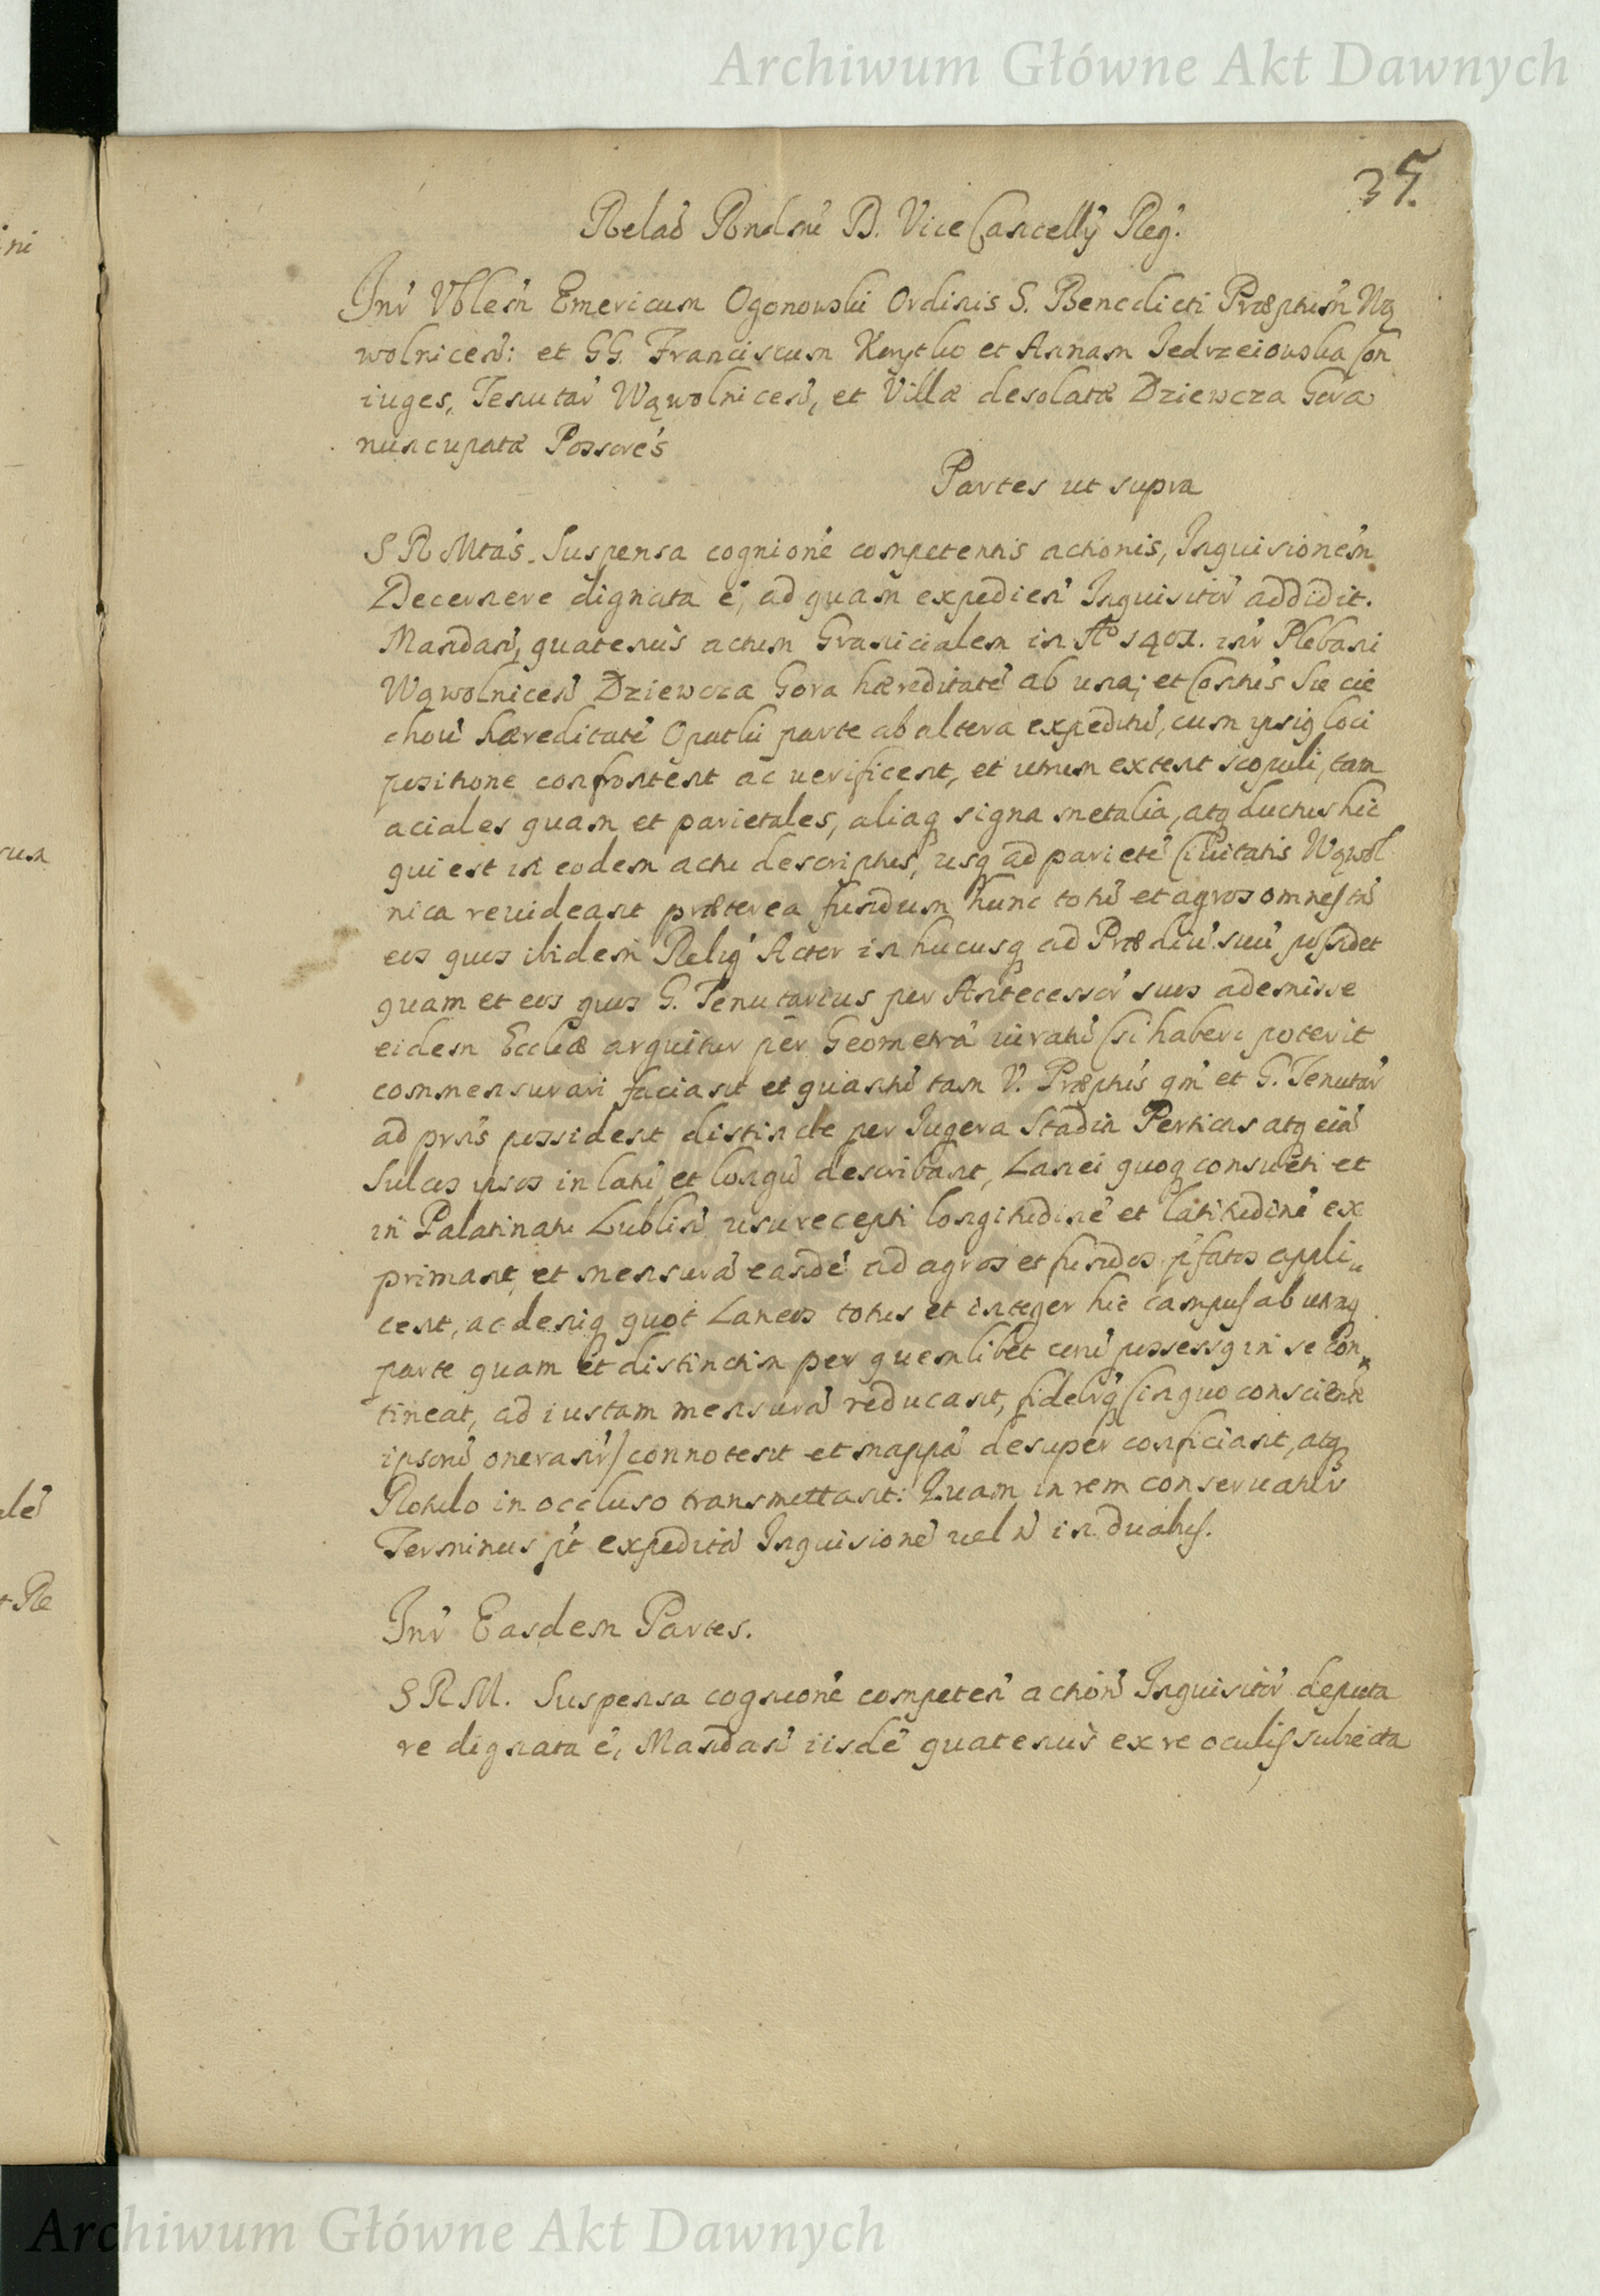 Archiwum Główne Akt Dawnych
35.
Relaõ Rndmi D. Vice Cancellÿ Reg.
Inr̃ Vblem̃ Emericum Ogonowski Ordinis S. Benedicti Præptum̃ Wą
wolniceñ: et GG. Franciscum et Annam Jedrzeiowska Con
iuges, Tenutar̃ Wąwolniceñ, et Villæ desolatæ Dziewcza Gora
nuncupatæ Possorẽs
Partes ut supra
S R Mtãs. Suspensa cognionẽ competentis actionis, Inquisionẽm
Decernere dignata ẽ, ad quam expedieñ Inquisitor̃ addidit.
Mandañ, quatenus actum Granicialem in Aº 1401. inr̃ Plebani
Wąwolniceñ Dziewcza Gora hæreditatẽ ab una; et Contis Sie cie
chou hæreditatẽ Opatki parte ab altera expeditũ, cum ipsiq loci
positione confrontent ac verificent, et utrum extent scopuli, tam
aciales quam et parietales, aliaq signa metalia, atq ductus hic
qui est in eodem actu descriptus, usq ad parietẽ Ciuitatis Wąwol
nica reuideant præterea fundum hunc totũ et agros omnes tñ
eos quos ibidem Relig̃ Actor in hucusq ad Prædiũ suũ possidet
quam et eos quos G. Tenutarius per Antecessor̃ suos ademisse
eidem Eccliæ arguitur per Geometrã iuratũ (si haberi poterit
commensurari faciant et quantũ tam V. Præptũs qm̃ et G. Tenutar̃
ad prñs possident distincte per Jugera Stadia Perticas atq eiã
Sulcos ipsos in latũ et longũ describant, Lanei quoq consueti et
in Palatinatu Lubliñ usu recepti longitudinẽ et latitudinẽ ex
primant, et mensurã eandẽ ad agros et fundos p̃fatos appli„
cent, ac deniq quot Laneos totus et integer hic campus ab utraq
parte quam et distinctim per quemlibet eorũ possessq in se con„
tineat, ad iustam mensurã reducant, fideliq (in quo conscientiæ
ipsorũ onerañr) connotent et mappã desuper conficiant, atq
Rotulo in occluso transmittant: Quam in rem conservatur
Terminus p̃t expeditã Inquisionẽ uel ñ in duabus.
Inr̃ Easdem Partes.
S R M. Suspensa cognionẽ competeñ actioñ Inquisitor̃ deputa
re dignata ẽ, Mandañ iisdẽ quatenus ex re oculis subiecta
Archiwum Główne Akt Dawnych